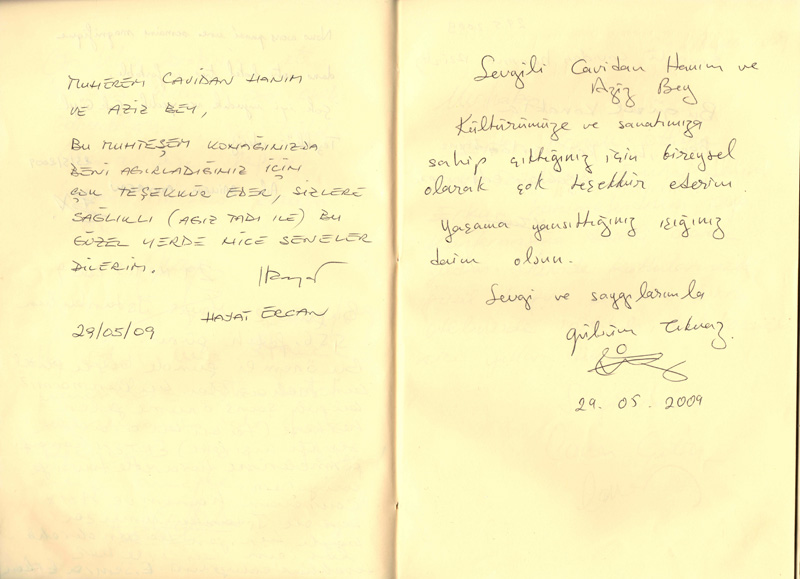 MUHEREM CAVİDAN HANIM
VE AZİZ BEY,
BU MUHTEŞEM KONAĞINIZDA
BENİ AĞIRLADIĞINIZ İÇİN
ÇOK TEŞEKKÜR EDER, SİZLERE
SAĞLIKLI (AĞIZ TADI İLE) BU
GÜZEL YERDE NİCE SENELER
DİLERİM.
HAYAT ERCAN
29/05/09
Sevgili Cavidan Hanım ve
Aziz Bey
Kültürümüze ve sanatımıza
sahip çıktığınız için bireysel
olarak çok teşekkür ederim.
Yaşama yansıttığınız ışığınız
daim olsun.
Sevgi ve saygılarımla
29. 05. 2009